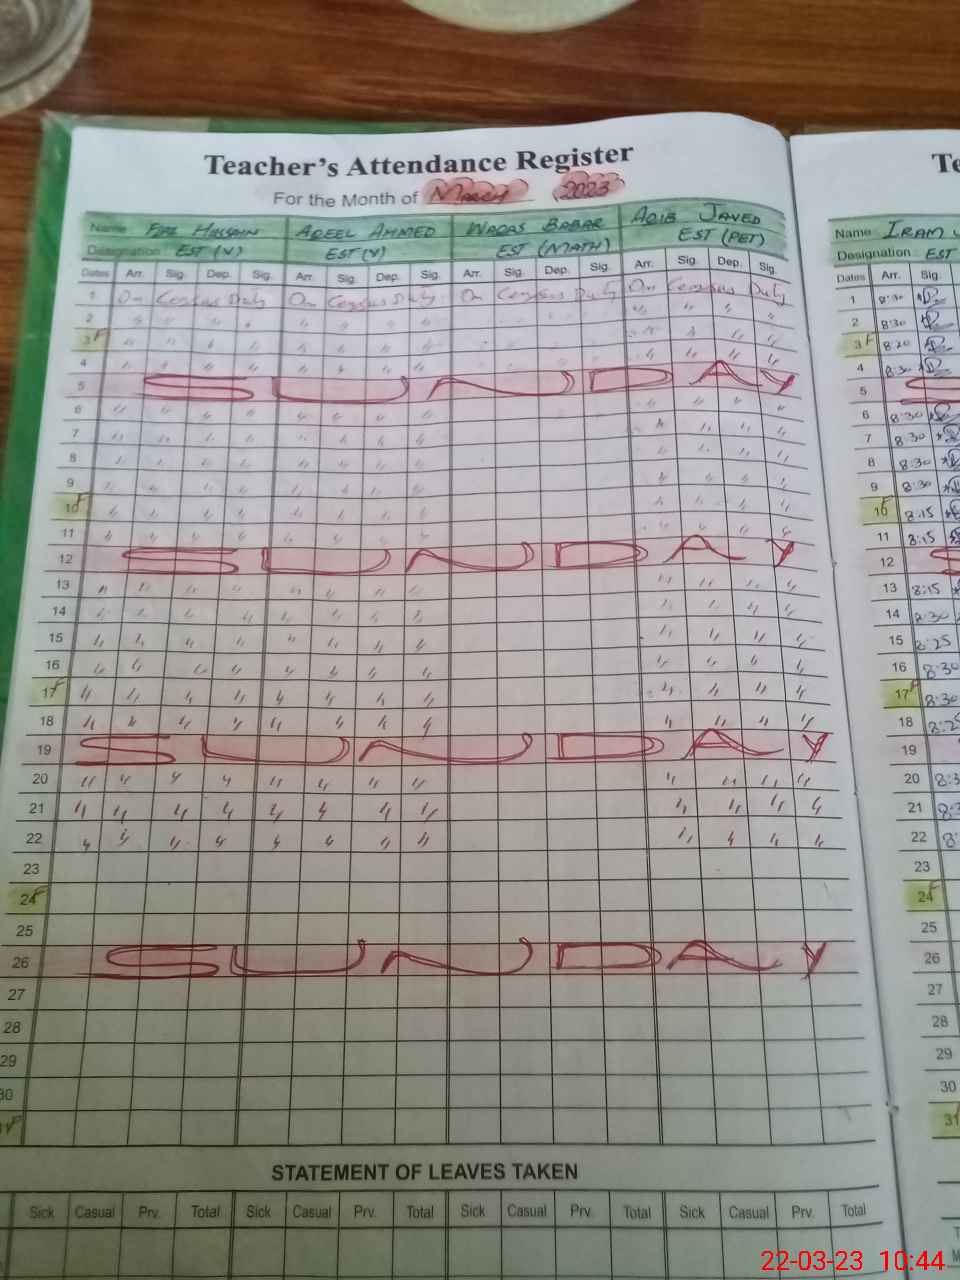 Teacher's Attendance Register
For the Month of March 2023
Name Fiaz Hussain ADEEL AHMED WAQAS BABAR AQIB JAVED
Designation EST (V) EST (V) EST (MATH) EST (PET)
Dates Arr. Sig. Dep. Sig. Arr. Sig. Dep. Sig. Arr. Sig. Dep. Sig. Arr. Sig. Dep. Sig.
1 On Census Duty On Census Duty On Census Duty On Census Duty
2 " " " " " " " " " " " "
3 F " " " " " " " " " " " "
4 " " " " " " " " " " " "
5 SUNDAY
6 " " " " " " " " " " " "
7 " " " " " " " " " " " "
8 " " " " " " " " " " " "
9 " " " " " " " " " " " "
10 F " " " " " " " " " " " "
11 " " " " " " " " " " " "
12 SUNDAY
13 " " " " " " " " " " " "
14 " " " " " " " " " " " "
15 " " " " " " " " " " " "
16 " " " " " " " " " " " "
17 F " " " " " " " " " " " "
18 " " " " " " " " " " " "
19 SUNDAY
20 " " " " " " " " " " " "
21 " " " " " " " " " " " "
22 " " " " " " " " " " " "
23
24 F
25
26 SUNDAY
27
28
29
30
STATEMENT OF LEAVES TAKEN
Sick Casual Prv. Total Sick Casual Prv. Total Sick Casual Prv. Total Sick Casual Prv. Total
Te
Name IRAM
Designation EST
Dates Arr. Sig.
1 8:30
2 8:30
3 F 8:20
4 8:30
5
6 8:30
7 8:30
8 8:30
9 8:30
10 F 8:15
11 8:15
12
13 8:15
14 8:30
15 8:25
16 8:30
17 F 8:30
18 8:25
19
20 8:3
21 8:3
22 8:
23
24 F
25
26
27
28
29
30
31
22-03-23 10:44